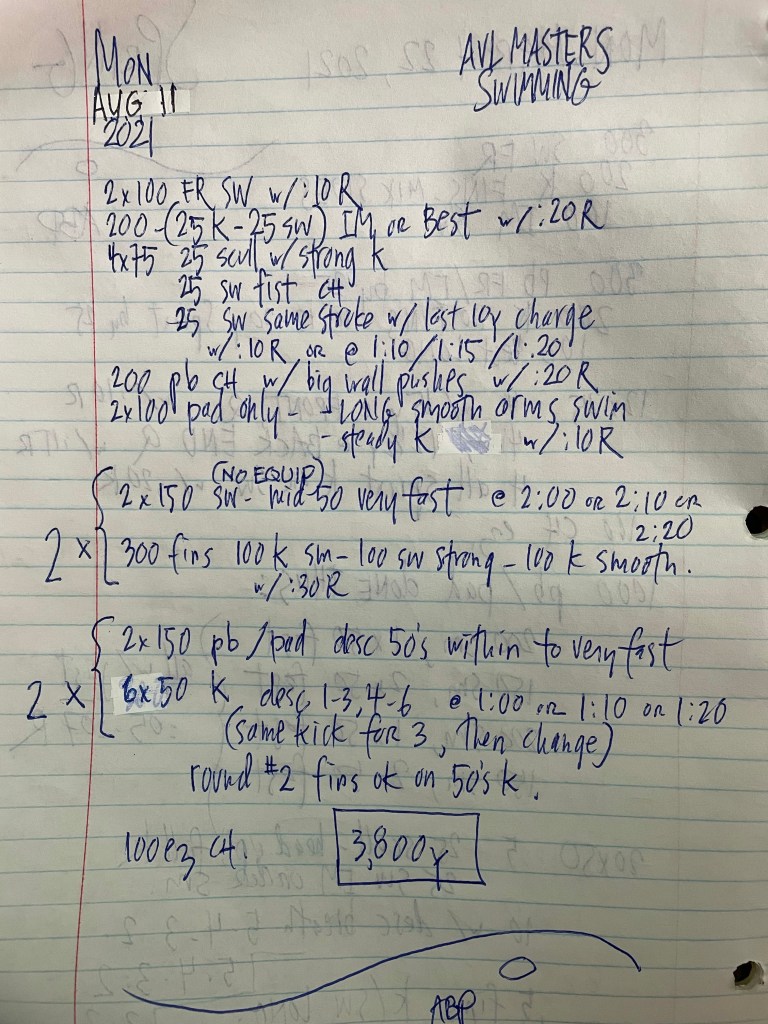 MON
AUG 11
2021
AVL MASTERS
SWIMMING
2x100 FR SW w/:10 R
200-(25K-25SW) IM or Best w/:20R
4x75 25 scull w/strong k
25 sw fist CH
25 sw same stroke w/ last 10y charge
w/:10R or @ 1:10/1:15/1:20
200 pb CH w/ big wall pushes w/:20R
2x100 pad only - - LONG smooth arms swim
- steady K w/:10R
(NO EQUIP)
2 x {
2x150 sw- mid-50 very fast @ 2:00 or 2:10 or
2:20
300 fins 100k sm-100 sw strong-100 k smooth.
w/:30R
2 x {
2x150 pb/pad desc 50's within to very fast
6x50 K desc 1-3, 4-6 @ 1:00 or 1:10 or 1:20
(same kick for 3, then change)
round #2 fins ok on 50's k.
100 ez CH.
3,800y
ABP